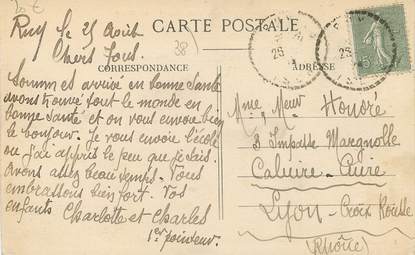 Ruy le 25 Août
CARTE POSTALE
Chers Tous.
CORRESPONDANCE
ADRESSE
Sommes arrivé en bonne santé
avons trouvé tout le monde en
bonne santé et on vous envoie bien
le bonjour. Je vous envoie l'école
ou j'ai appris le peu que je sais.
Avons assez beau temps. Vous
embrassons bien fort. Vos
enfants Charlotte et Charles
1er pointeur.
Mme, Meur Honoré
3 Impasse Margnolle
Caluire-Cuire
Lyon-Croix Rousse
(Rhône)
25
15